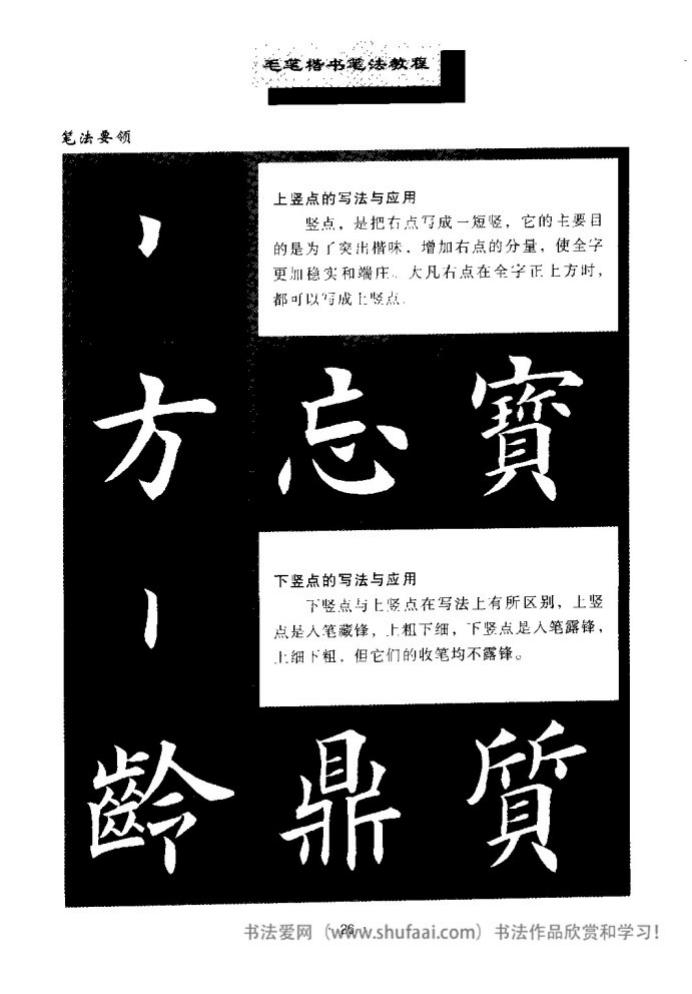 毛笔楷书笔法教程
笔法要领
上竖点的写法与应用
竖点，是把右点写成一短竖，它的主要目
的是为了突出楷味，增加右点的分量，使全字
更加稳实和端庄。大凡右点在全字正上方时，
都可以写成上竖点。
方 忘 寶
下竖点的写法与应用
下竖点与上竖点在写法上有所区别，上竖
点是入笔藏锋，上粗下细，下竖点是入笔露锋，
上细下粗，但它们的收笔均不露锋。
齡 鼎 質
26
书法爱网（www.shufaai.com）书法作品欣赏和学习！